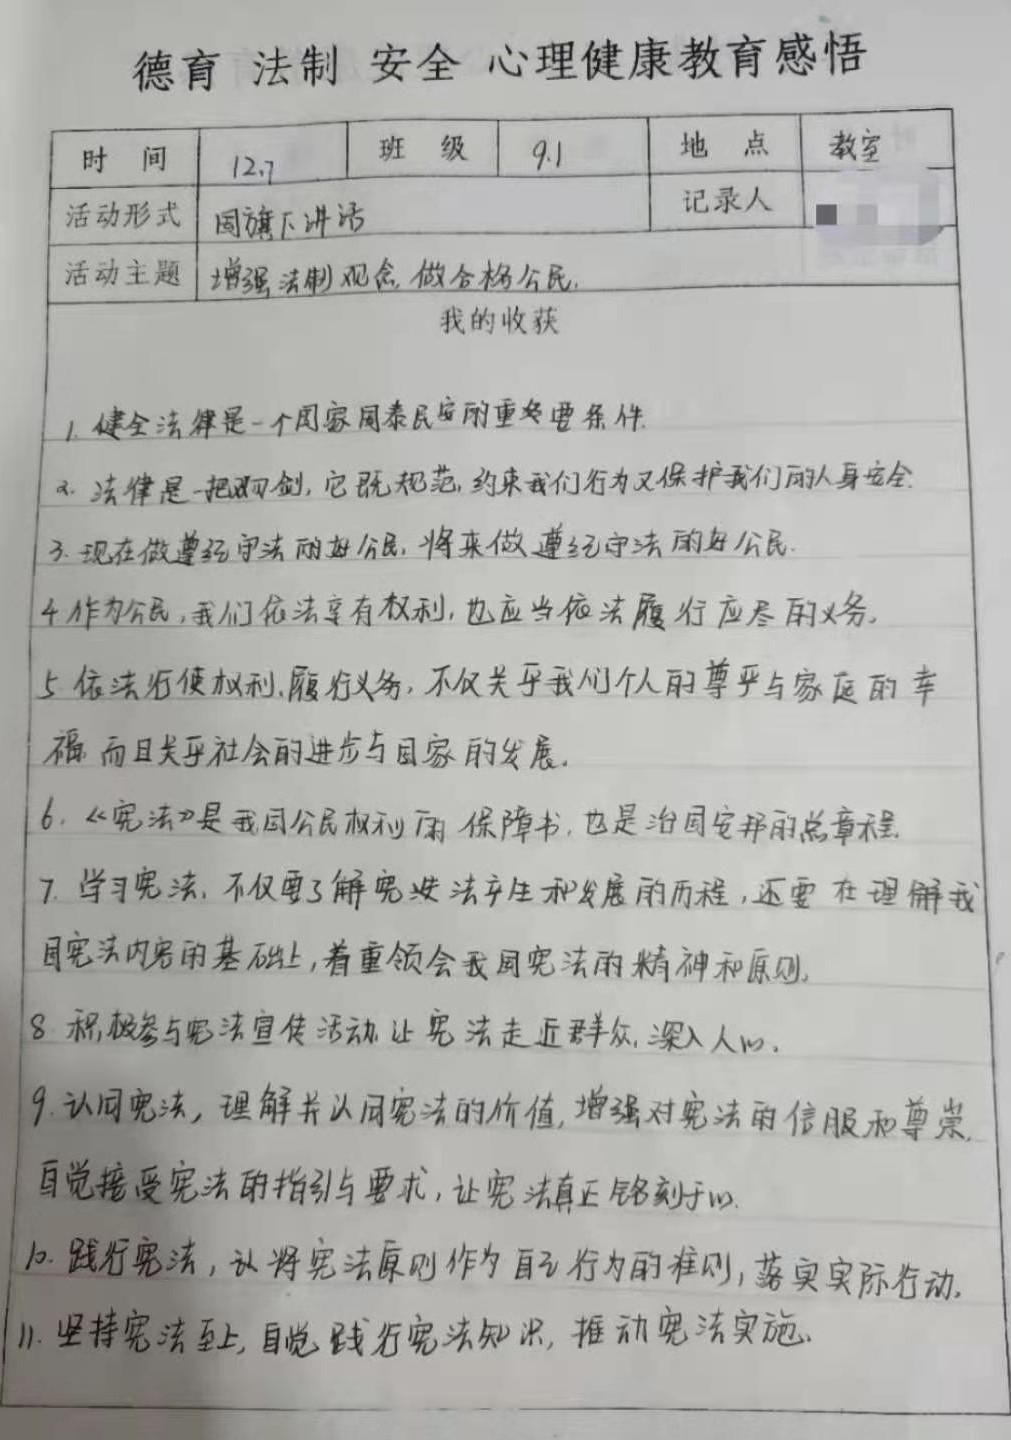 德育 法制 安全 心理健康教育感悟
时间 12.7 班级 9.1 地点 教室
活动形式 国旗下讲话 记录人
活动主题 增强法制观念,做合格公民.
我的收获
1. 健全法律是一个国家国泰民安的重要条件.
2. 法律是一把双刃剑,它既规范,约束我们行为又保护我们的人身安全.
3. 现在做遵纪守法的好公民,将来做遵纪守法的好公民.
4 作为公民,我们依法享有权利,也应当依法履行应尽的义务.
5 依法行使权利、履行义务,不仅关乎我们个人的尊严与家庭的幸
福 而且关乎社会的进步与国家的发展.
6.《宪法》是我国公民权利的保障书,也是治国安邦的总章程.
7. 学习宪法,不仅要了解宪法产生和发展的历程,还要在理解我
国宪法内容的基础上,着重领会我国宪法的精神和原则.
8 积极参与宪法宣传活动,让宪法走近群众,深入人心.
9. 认同宪法,理解并认同宪法的价值,增强对宪法的信服和尊崇,
自觉接受宪法的指引与要求,让宪法真正铭刻于心.
10. 践行宪法,将宪法原则作为自己行为的准则,落实实际行动.
11. 坚持宪法至上,自觉践行宪法知识,推动宪法实施.